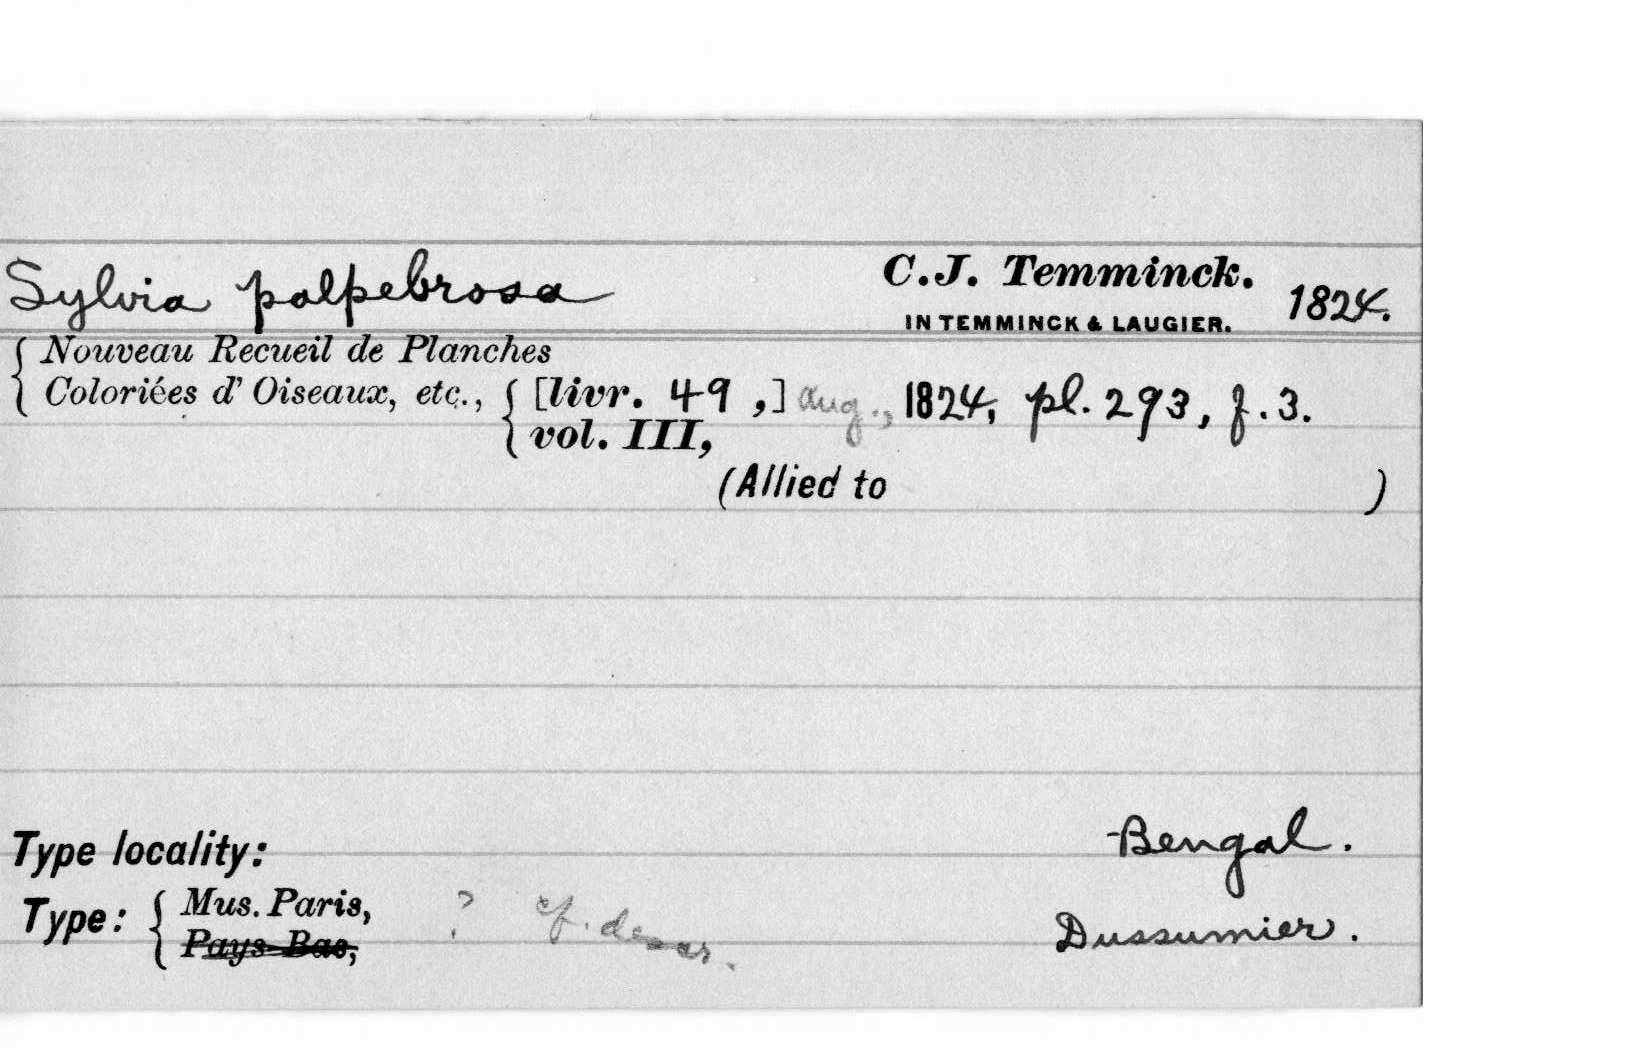 Sylvia palpebrosa C.J. Temminck. 1824.
IN TEMMINCK & LAUGIER.
Nouveau Recueil de Planches
Coloriées d' Oiseaux, etc., [livr. 49 ,] Aug., 1824, pl. 293, f. 3.
vol. III,
(Allied to )
Type locality: Bengal.
Type: Mus. Paris, ? cf. descr. Dussumier.
Pays-Bas,